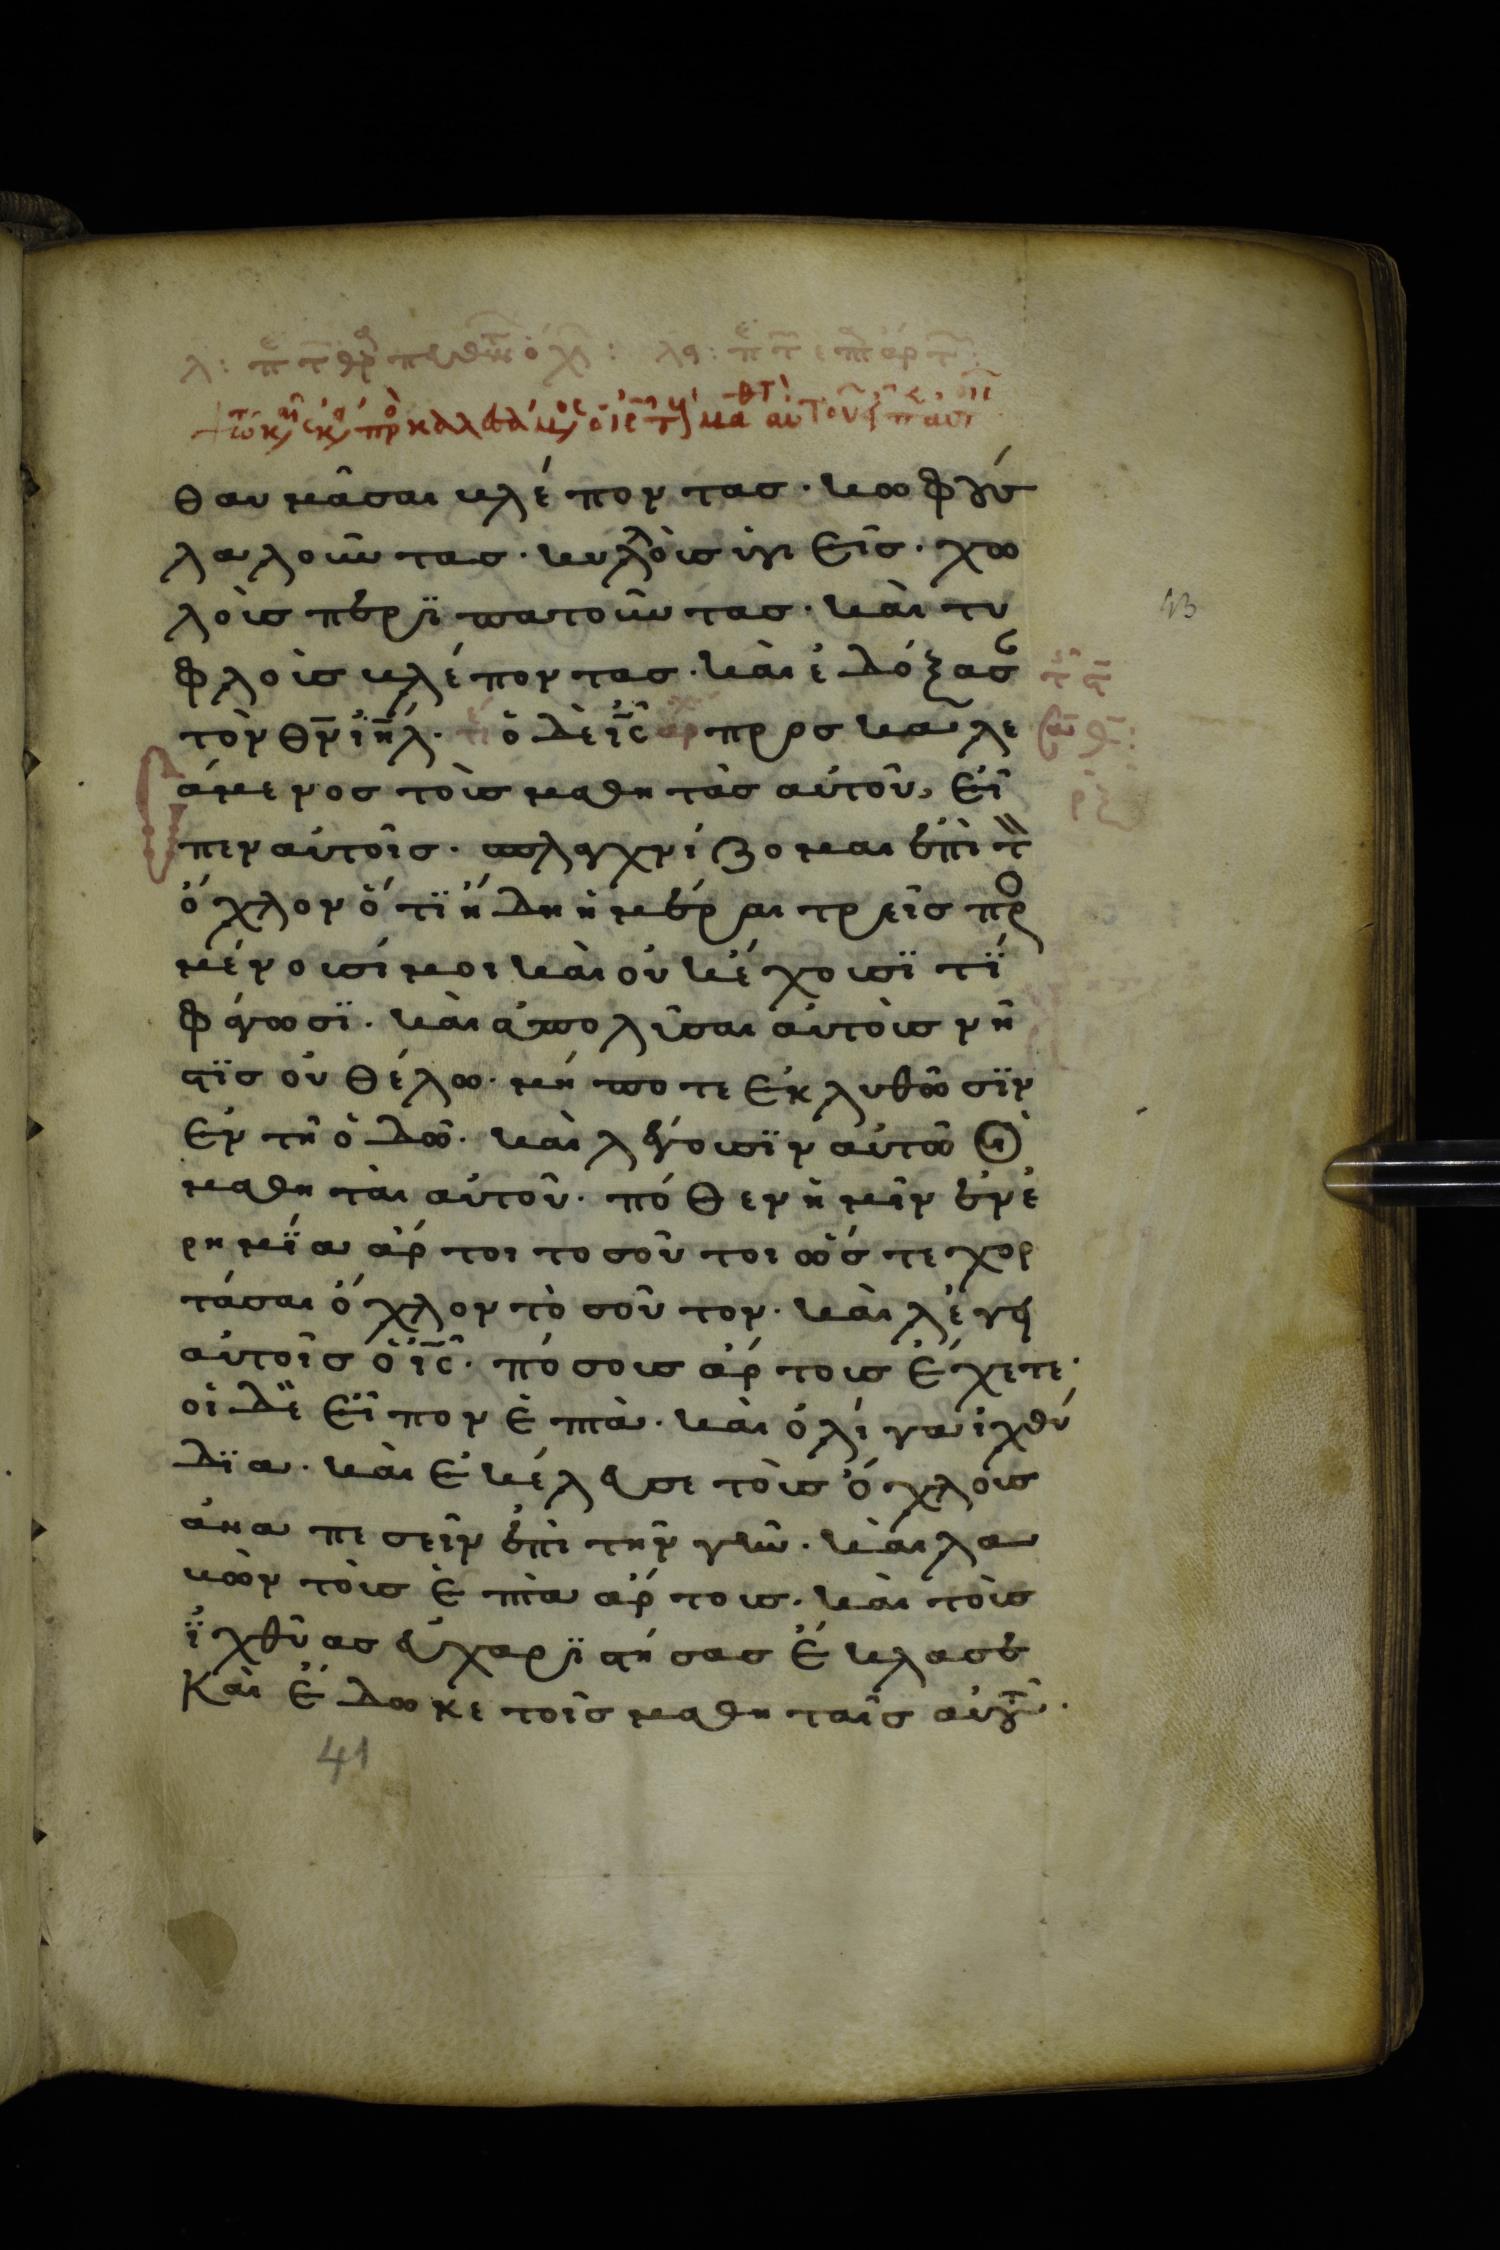 θαυμᾶσαι βλέποντας· κωφοὺς
λαλοῦντας· κυλλοὺς ὑγιεῖς· χω
λοὺς περϊπατοῦντας· καὶ τυ
φλοὺς βλέποντας· καὶ ἐδόξασ
τὸν θν̅ ἰη̅λ· ὁ δὲ ἰς̅ προσκαλε
σάμενος τοὺς μαθητὰς αὐτοῦ, εἶ
πεν αὐτοῖς· σπλαγχνίζομαι ἐπὶ τὸν
ὄχλον ὅτϊ ἤδη ἡμέραι τρεῖς προσ
μένουσί μοι καὶ οὐκ ἔχουσϊ τϊ
φάγωσϊ· καὶ ἀπολῦσαι αὐτοὺς νή
στϊς οὐ θέλω· μή ποτε ἐκλυθῶσϊν
ἐν τῇ ὁδῷ· καὶ λέγουσϊν αὐτῷ οἱ
μαθηταὶ αὐτοῦ· πόθεν ἡμῖν ἐν ἐ
ρημΐα ἄρτοι τοσοῦτοι ὥστε χορ
τάσαι ὄχλον τὸσοῦτον· καὶ λέγει
αὐτοῖς ὁ ἰς̅· πόσους ἄρτους ἔχετε·
οἱ δὲ εἶπον ἑπτὰ· καὶ ὀλίγα ἰχθύ
δϊα· καὶ ἐκέλευσε τοὺς ὄχλους
ἀναπεσεῖν ἐπὶ τὴν γῆν· καὶ λα
βὼν τοὺς ἑπτὰ ἄρτους· καὶ τοὺς
ἰχθῦας εὐχαρϊστήσας ἔκλασε
καὶ ἔδωκε τοῖς μαθηταῖς αὐτοῦ·
41